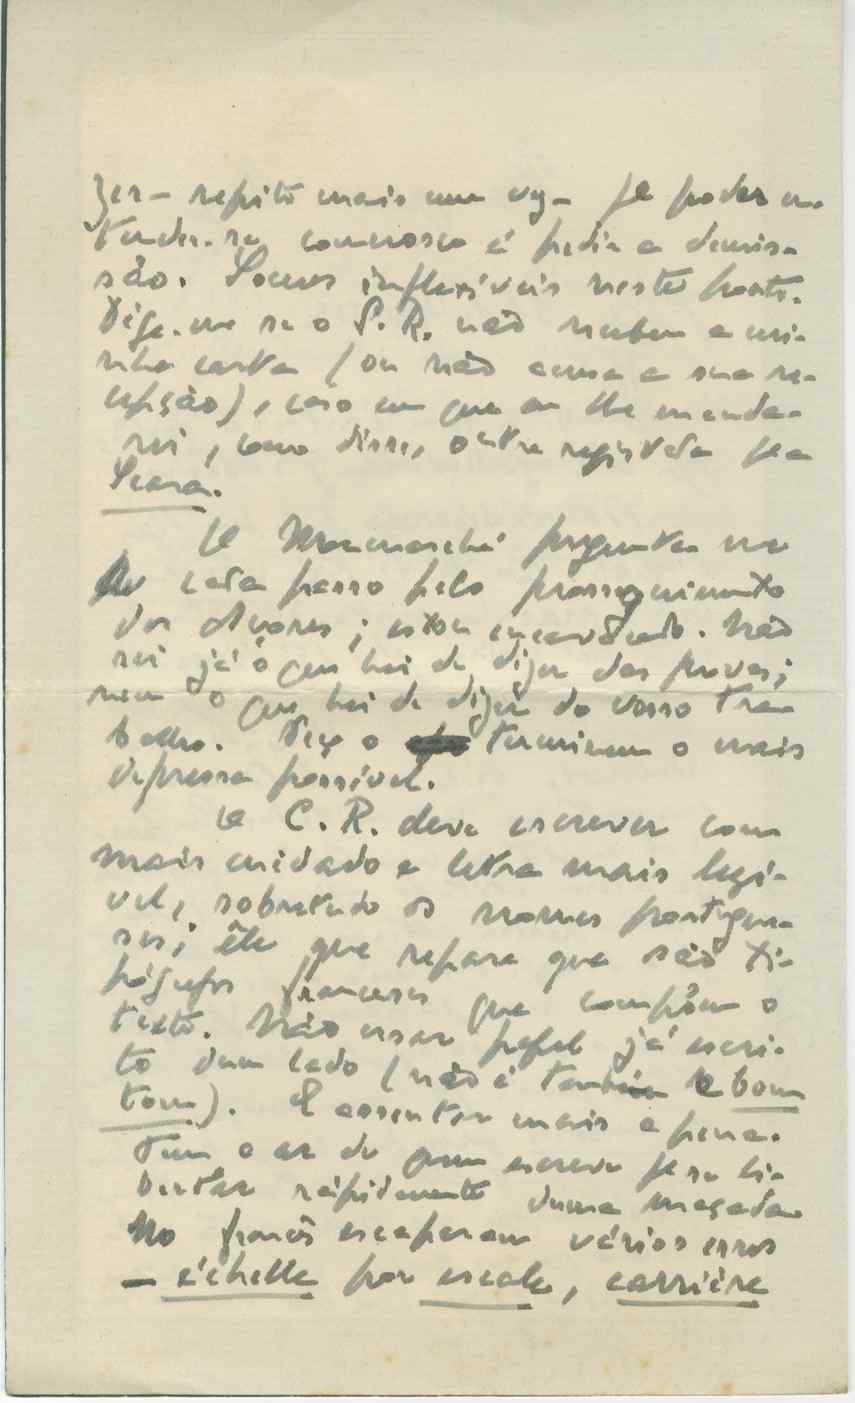 zer — repito mais uma vez — pª poder en-
tender-se connosco é pedir a demis-
são. Somos inflexíveis neste ponto.
Diga-me se o S. R. não recebeu a mi-
nha carta (ou não acusa a sua re-
cepção), caso em que eu lhe manda-
rei, como disse, outra registada pª a
Seara.
O Mounarché pergunta-me
a cada passo pelo prosseguimento
dos Alvores; estou encavacado. Não
sei já o que hei de dizer das provas;
nem o que hei de dizer do vosso tra-
balho. Peço o terminem o mais
depressa possível.
O C. R. deve escrever com
mais cuidado e letra mais legí-
vel, sobretudo os nomes portugue-
ses; êle que repare que são ti-
pógrafos franceses que compõem o
texto. Não usar papel já escri-
to dum lado (não é também de bom
tom). E assentar mais a pena.
Tem o ar de quem escreve pª se li-
bertar ràpidamente duma maçada.
No francês escaparam vários erros
— échelle por escale, carrière